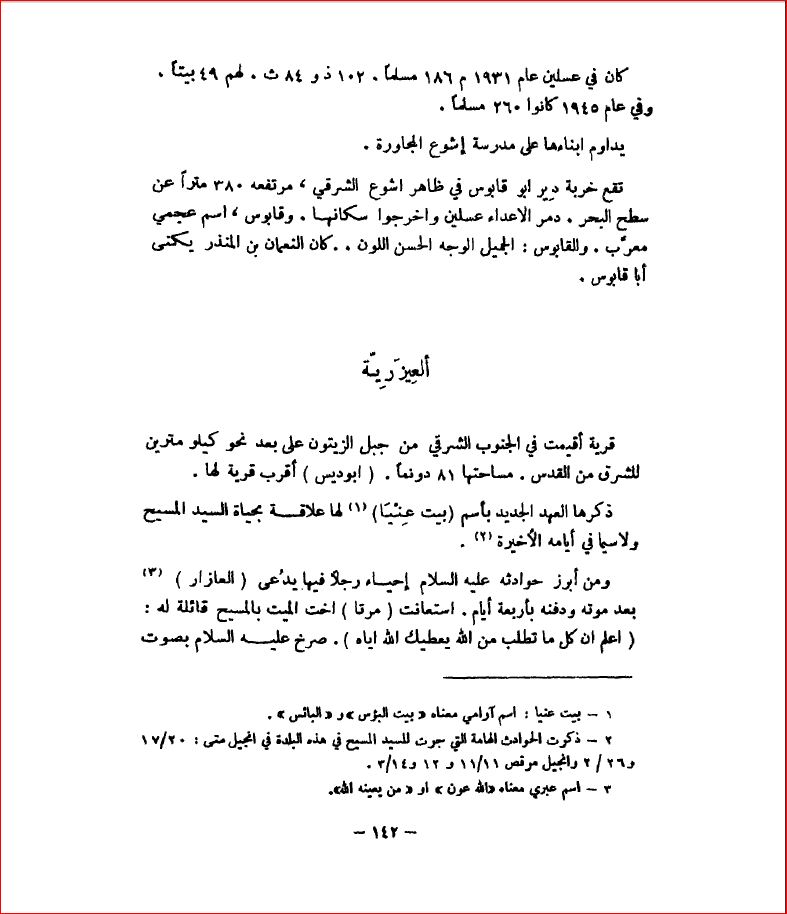 كان في عسلين عام ١٩٣١ م ١٨٦ مسلماً . ١٠٢ ذ و ٨٤ ث . لهم ٤٩ بيتاً .
وفي عام ١٩٤٥ كانوا ٢٦٠ مسلماً .
يداوم ابناءها على مدرسة إشوع المجاورة .
تقع خربة دير ابو قابوس في ظاهر اشوع الشرقي ، مرتفعه ٣٨٠ متراً عن
سطح البحر . دمر الاعداء عسلين واخرجوا سكانها . وقابوس ، اسم عجمي
معرَّب . وللقابوس : الجميل الوجه الحسن اللون . .كان النعمان بن المنذر يكنى
أبا قابوس .
ألعِيزَرِيّة
قرية أقيمت في الجنوب الشرقي من جبل الزيتون على بعد نحو كيلو مترين
للشرق من القدس . مساحتها ٨١ دونماً . ( ابوديس ) أقرب قرية لها .
ذكرها العهد الجديد بأسم (بيت عِنْيَا) (١) لها علاقة بحياة السيد المسيح
ولاسيما في أيامه الأخيرة (٢) .
ومن أبرز حوادثه عليه السلام إحياء رجلاً فيها يدُعى ( العازار ) (٣)
بعد موته ودفنه بأربعة أيام . استعانت ( مرتا ) اخت الميت بالمسيح قائلة له :
( اعلم ان كل ما تطلب من الله يعطيك الله اياه ) . صرخ عليه السلام بصوت
١ – بيت عنيا : اسم آرامي معناه «بيت البؤس» و «البائس» .
٢ – ذكرت الحوادث الهامة التي جرت للسيد المسيح في هذه البلدة في انجيل متى : ١٧/٢٠
و٢٦ / ٢ وانجيل مرقص ١١/١١ و ١٢ و٣/١٤ .
٣ – اسم عبري معناه «الله عون» او «من يعينه الله».
– ١٤٢ –